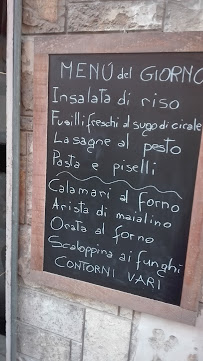 MENÚ del GIORNO
Insalata di riso
Fusilli freschi al sugo di cicale
Lasagne al pesto
Pasta e piselli
Calamari al forno
Arista di maialino
Orata al forno
Scaloppina ai funghi
CONTORNI VARI